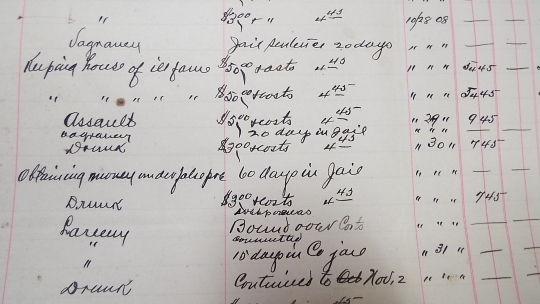 $3⁰⁰ " " 4⁴⁵ 10/28 08 — —
Vagrancy Jail sentence 20 days " " " — —
Keeping house of ill fame $50⁰⁰ & costs 4⁴⁵ " " " 5445 —
" " " " " $50⁰⁰ & costs 4⁴⁵ " " " 5445 —
Assault $5⁰⁰ & costs 4⁴⁵ " 29 " 945 —
Vagrancy 20 day in Jail " " " — —
Drunk $3⁰⁰ & costs 4⁴⁵ " 30 " 745 —
Obtaining money under false pre 60 days in Jail " " " — —
Drunk $3⁰⁰ & costs 4⁴⁵ " " " 745
Larceny Bound over Costs " " " — —
committed
" 15 days in Co jail " 31 " — —
" " " " — —
Drunk Continued to Nov. 2 " " " — —